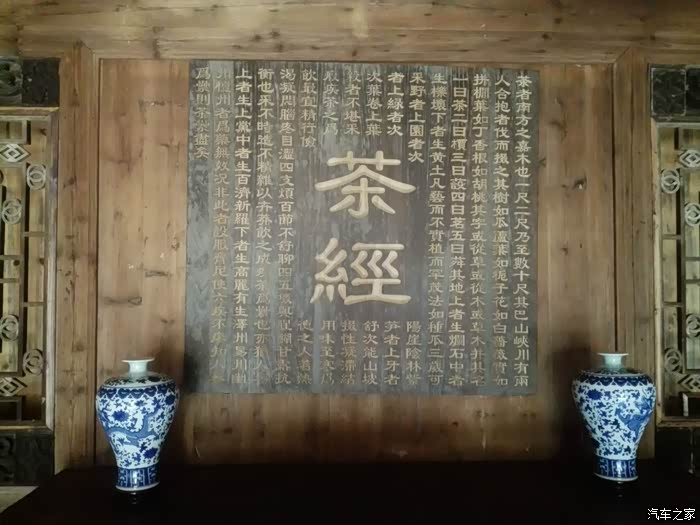 茶者南方之嘉木也一尺二尺乃至數十尺其巴山峽川有兩
人合抱者伐而掇之其樹如瓜蘆葉如梔子花如白薔薇實如
栟櫚葉如丁香根如胡桃其字或從草或從木或草木并其名
一曰茶二曰檟三曰蔎四曰茗五曰荈其地上者生爛石中者
生櫟壤下者生黃土凡藝而不實植而罕茂法如種瓜三歲可
采野者上園者次陽崖陰林紫
者上綠者次笋者上牙者
次葉卷上葉舒次陰山坡
谷者不堪采掇性凝滯結
瘕疾茶之爲用味至寒爲
飲最宜精行儉德之人若熱
渴凝悶腦疼目澀四支煩百節不舒聊四五啜與醍醐甘露抗
衡也采不時造不精雜以卉莽飲之成疾茶爲累也亦猶人參
上者生上黨中者生百濟新羅下者生高麗有生澤州易州幽
州檀州者爲藥無效況非此者設服薺苨使六疾不瘳知人參
爲累則茶累盡矣
茶經
汽车之家